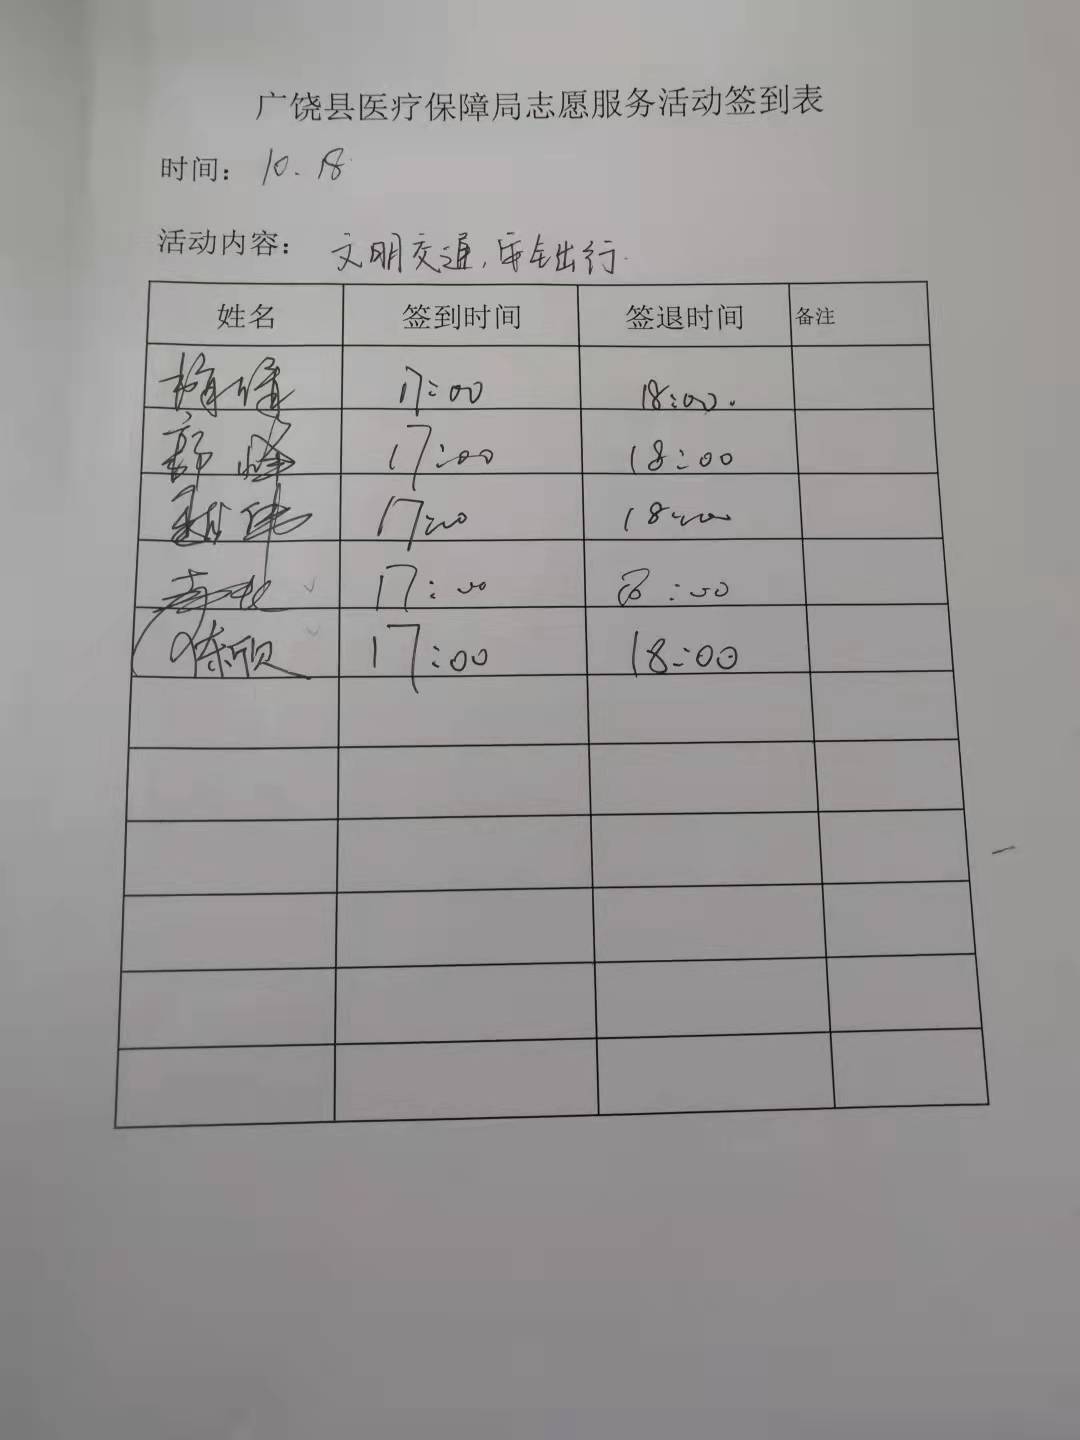 广饶县医疗保障局志愿服务活动签到表
时间： 10.18
活动内容： 文明交通，安全出行.
姓名 签到时间 签退时间 备注
17:00 18:00.
郭峰 17:00 18:00
赵伟 17:00 18:00
17:00 18:00
陈颀 17:00 18:00